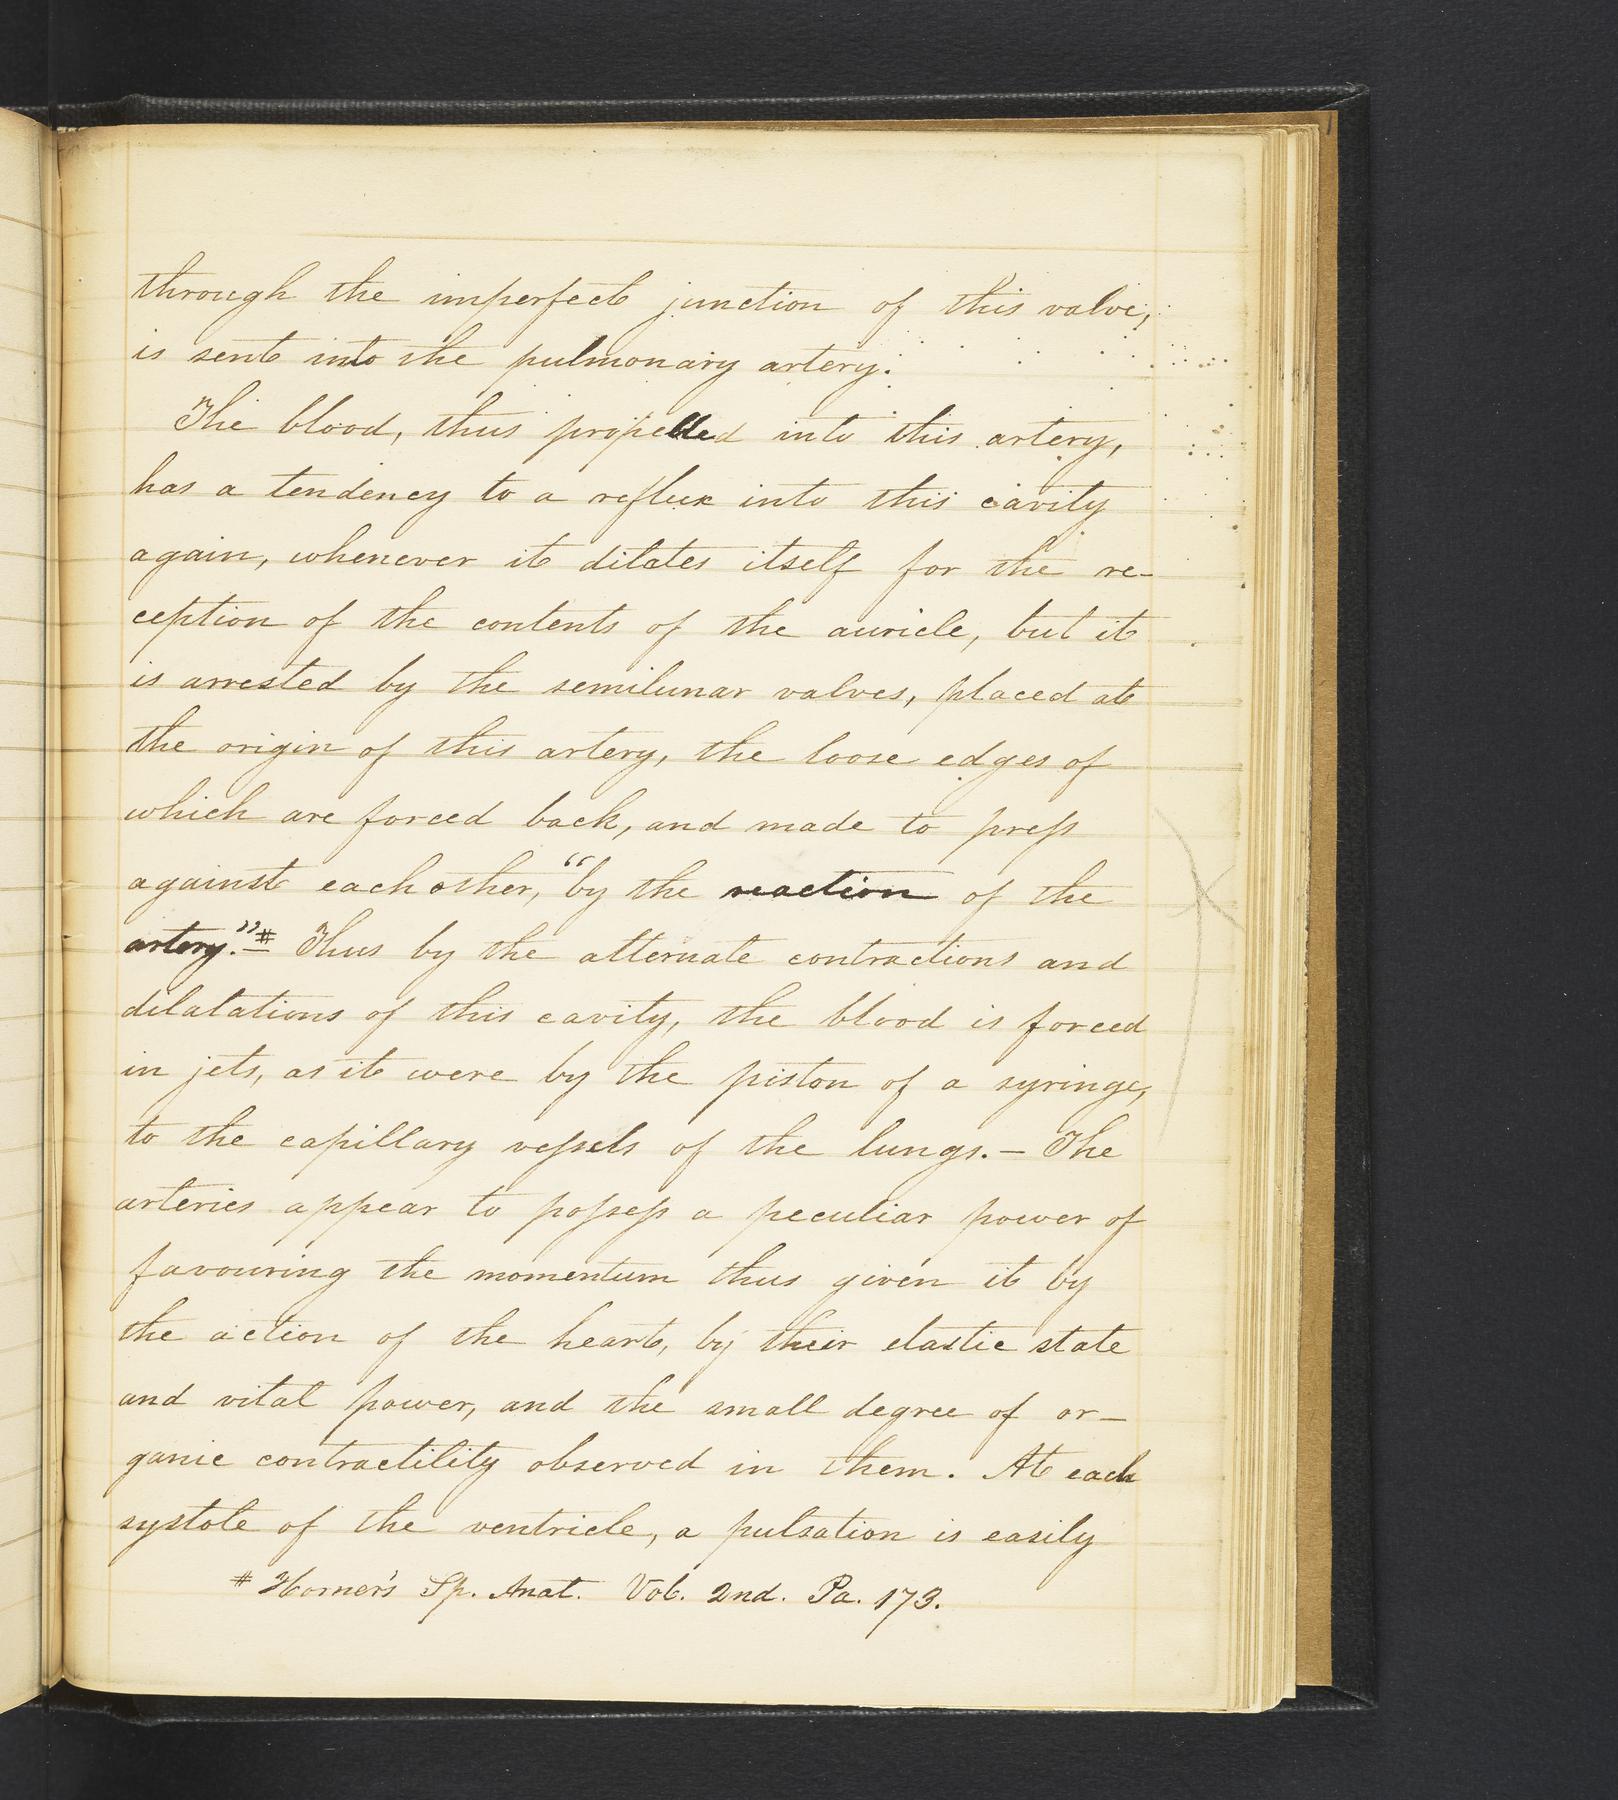 through the imperfect junction of this valve,
is sent into the pulmonary artery.
The blood, thus propelled into this artery,
has a tendency to a reflux into this cavity
again, whenever it dilates itself for the re-
ception of the contents of the auricle, but it
is arrested by the semilunar valves, placed at
the origin of this artery, the loose edges of
which are forced back, and made to press
against each other, "by the reaction of the
artery."# Thus by the alternate contractions and
dilatations of this cavity, the blood is forced
in jets, as it were by the piston of a syringe,
to the capillary vessels of the lungs. — The
arteries appear to possess a peculiar power of
favouring the momentum thus given it by
the action of the heart, by their elastic state
and vital power, and the small degree of or-
ganic contractility observed in them. At each
systole of the ventricle, a pulsation is easily
# Horner's Sp. Anat. Vol. 2nd. Pa. 173.